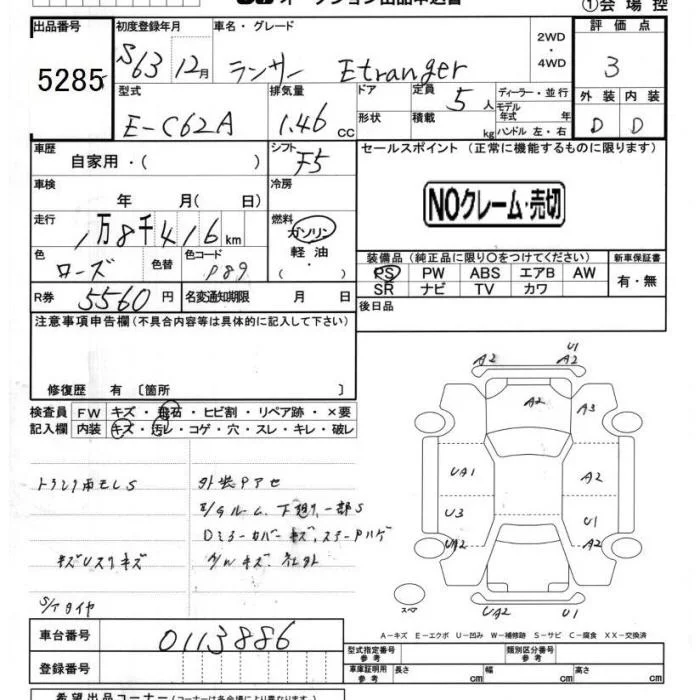 オークション出品申込書 ①会場控
出品番号 初度登録年月 車名・グレード 2WD・4WD 評価点
5285 S63 12月 ランサー Etranger 3
型式 排気量 ドア 定員 5人 ディーラー・並行 外装 内装
E-C62A 1.46 cc 形状 積載 kg モデル年式 年 ハンドル 左・右 D D
車歴 自家用・( ) シフト F5 セールスポイント (正常に機能するものに限ります)
車検 年 月( 日) 冷房
NOクレーム・売切
走行 1万8千416km 燃料 ガソリン・軽油・( )
色 ローズ 色替 色コード P89 装備品(純正品に限り○をつけてください) 新車保証書
PS PW ABS エアB AW 有・無
SR ナビ TV カワ
R券 5560円 名変通知期限 月 日 後日品
注意事項申告欄(不具合内容等は具体的に記入して下さい)
修復歴 有 〔箇所 〕
検査員 FW キズ・飛石・ヒビ割・リペア跡・×要
記入欄 内装 キズ・汚レ・コゲ・穴・スレ・キレ・破レ
U1
A2 A2
A2 A3
UA1 A2
U3 U1
UA2 A2
スペア
UA2 U1
トランク雨モレS 外装Pアセ
E/Gルーム、下廻り一部S
Dミラーカバーキズ、ステーPハゲ
キズUスリキズ
S/Tタイヤ
A-キズ E-エクボ U-凹み W-補修跡 S-サビ C-腐食 XX-交換済
車台番号 0113886
型式指定番号 参考 類別区分番号 参考
登録番号 車庫証明用 参考 長さ cm 幅 cm 高さ cm
希望出品コーナー(コーナーは各会場により異なります)